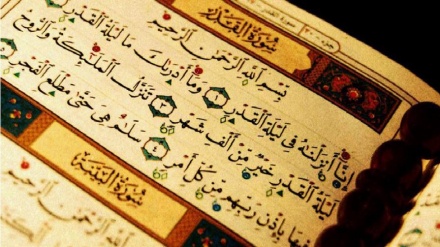 سُورَةُ القَدْرِ
بِسْمِ اللَّهِ الرَّحْمَٰنِ الرَّحِيمِ
إِنَّا أَنزَلْنَٰهُ فِى لَيْلَةِ الْقَدْرِ ١ وَمَا أَدْرَىٰكَ مَا لَيْلَةُ الْقَدْرِ ٢
لَيْلَةُ الْقَدْرِ خَيْرٌ مِّنْ أَلْفِ شَهْرٍ ٣ تَنَزَّلُ الْمَلَٰئِكَةُ وَالرُّوحُ
فِيهَا بِإِذْنِ رَبِّهِم مِّن كُلِّ أَمْرٍ ٤ سَلَٰمٌ هِىَ حَتَّىٰ مَطْلَعِ الْفَجْرِ
سُورَةُ البَيِّنَةِ
بِسْمِ اللَّهِ الرَّحْمَٰنِ الرَّحِيمِ